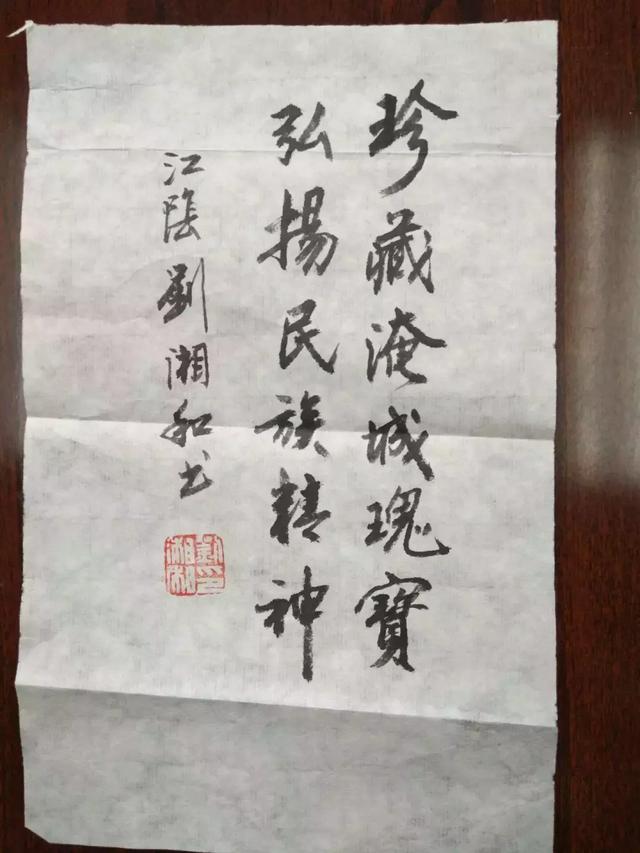 珍藏淹城瑰寶
弘揚民族精神
江陰劉湘和书